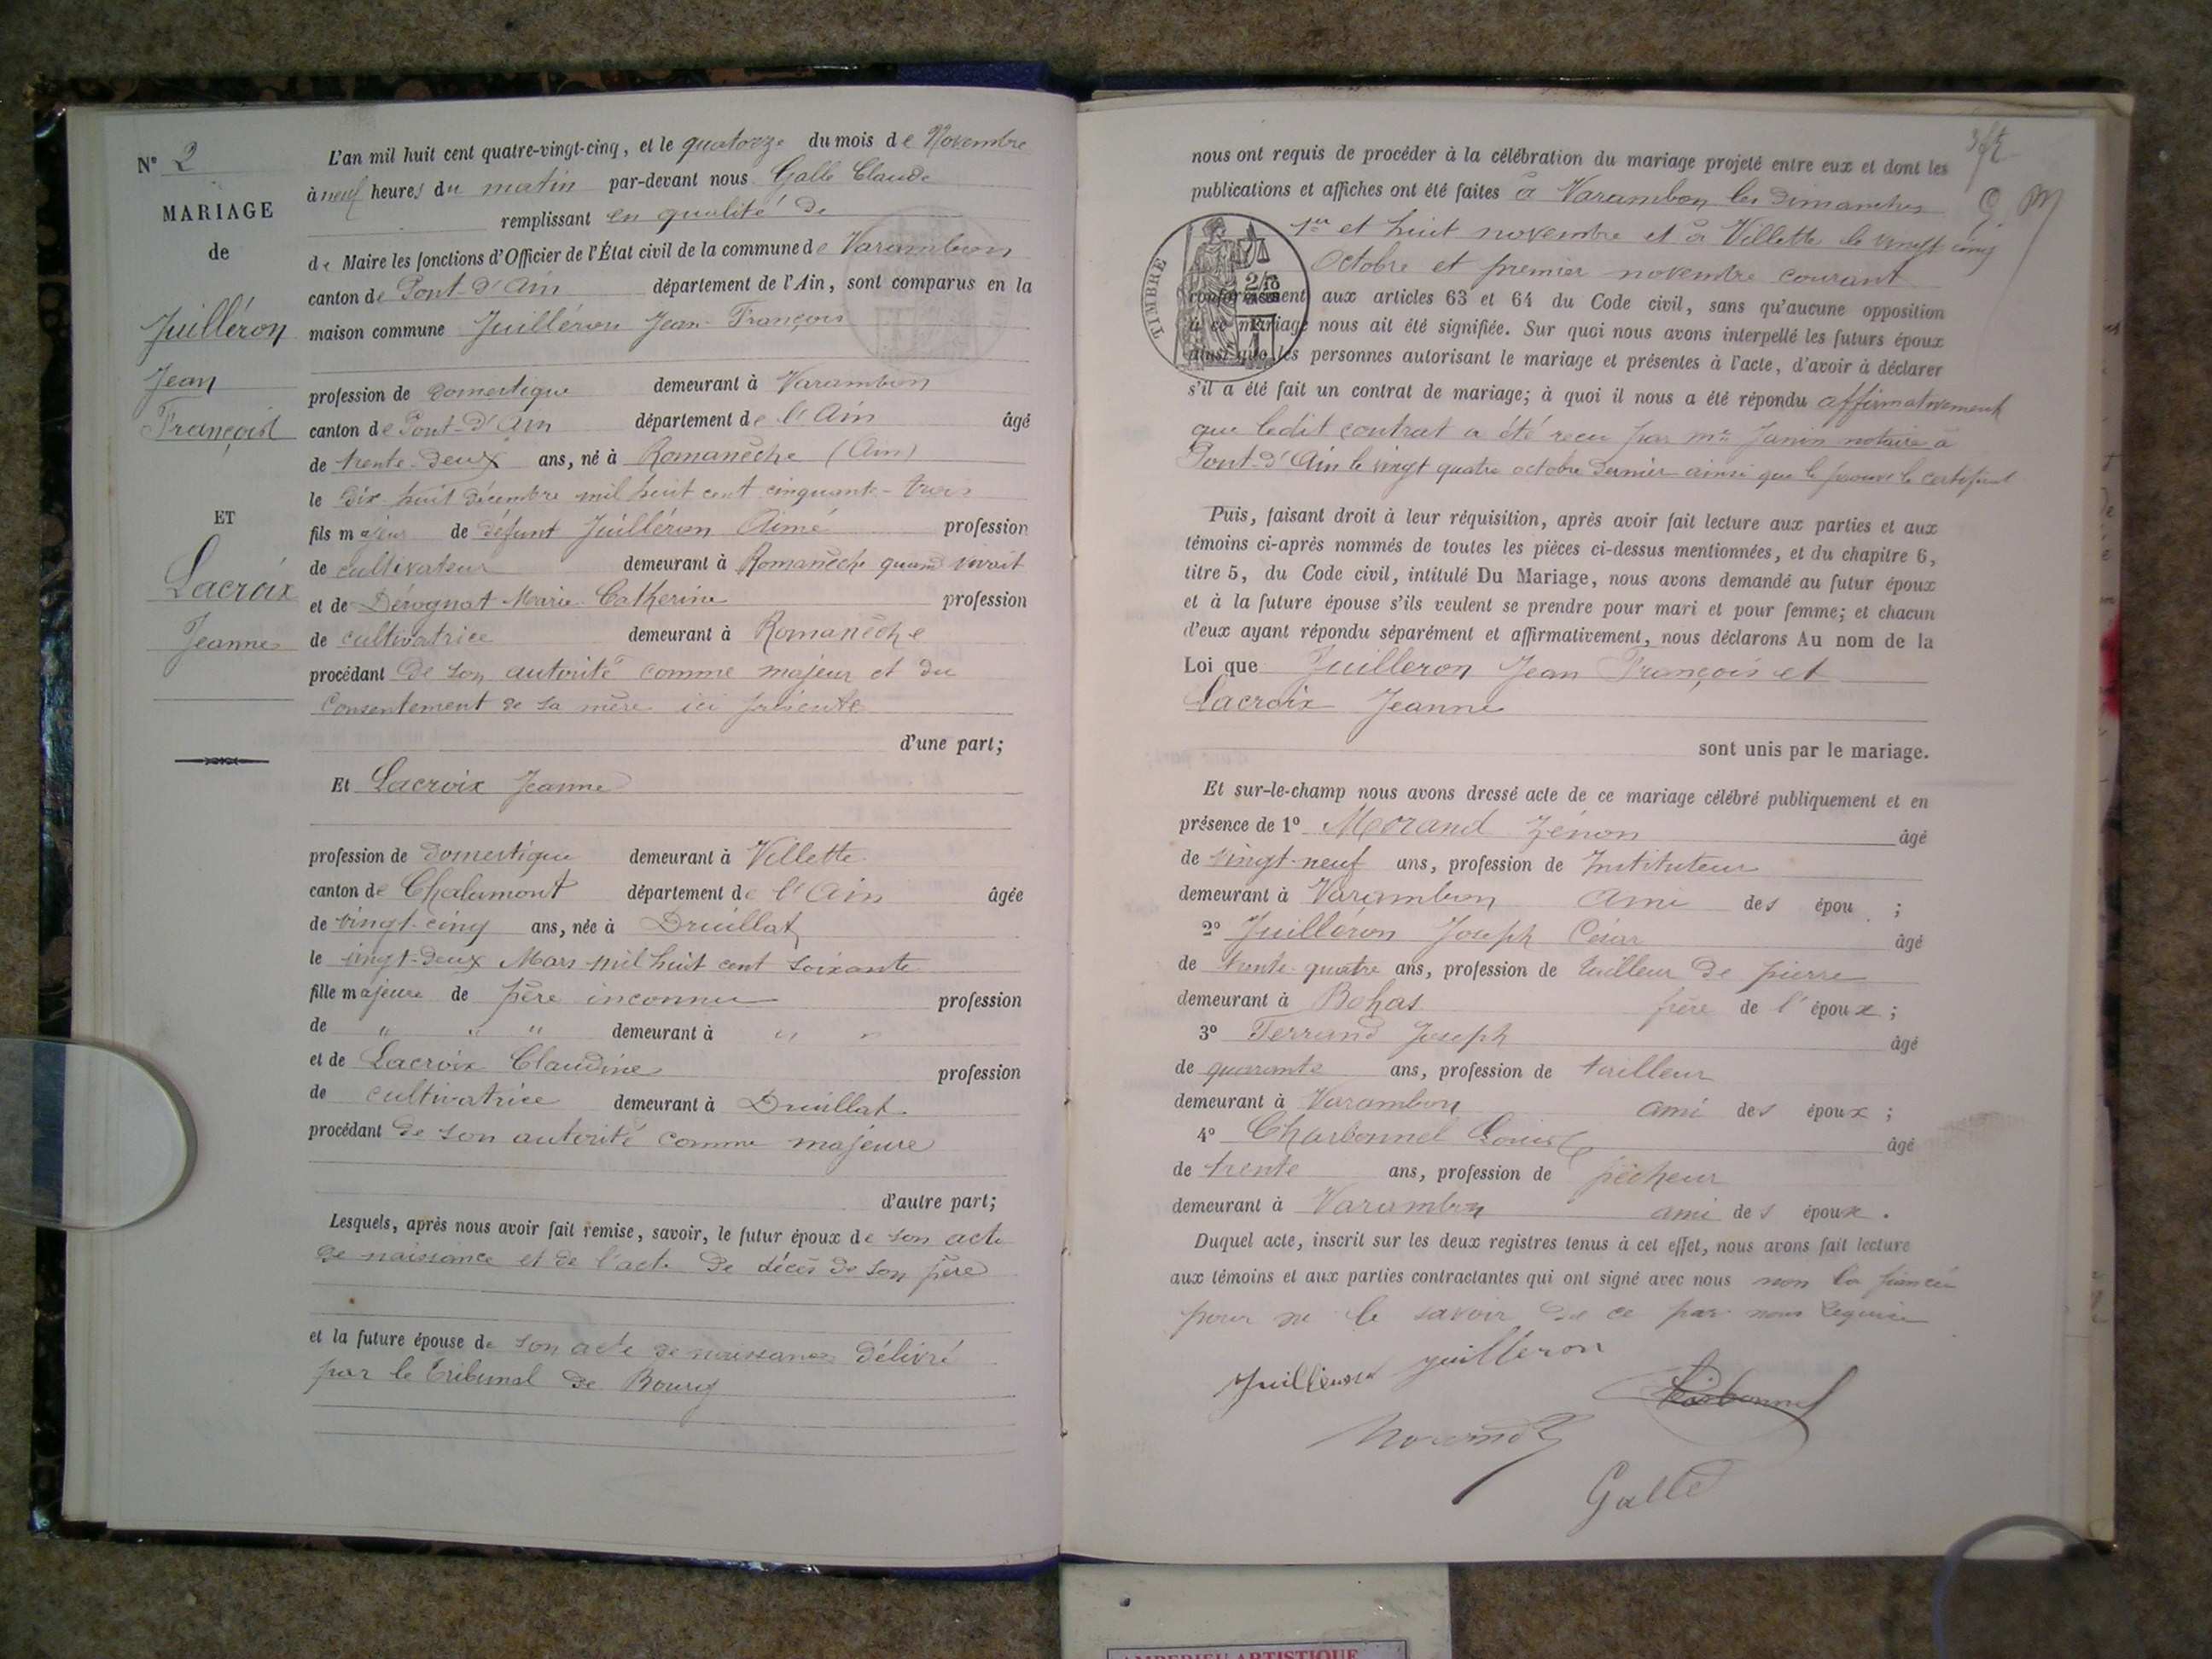 N° 2
MARIAGE
de
Juilléron
Jean
François
ET
Lacroix
Jeanne
L'an mil huit cent quatre-vingt-cinq, et le quatorze du mois de Novembre
à neuf heures du matin par-devant nous Galle Claude
remplissant en qualité de
de Maire les fonctions d'Officier de l'État civil de la commune de Varambon
canton de Pont-d'Ain département de l'Ain, sont comparus en la
maison commune Juilléron Jean-François
profession de domestique demeurant à Varambon
canton de Pont-d'Ain département de l'Ain âgé
de trente-deux ans, né à Romanèche (Ain)
le dix huit décembre mil huit cent cinquante-trois
fils majeur de défunt Juilléron Aimé profession
de cultivateur demeurant à Romanèche quand vivait
et de Dérognat Marie Catherine profession
de cultivatrice demeurant à Romanèche
procédant de son autorité comme majeur et du
consentement de sa mère ici présente
d'une part;
Et Lacroix Jeanne
profession de domestique demeurant à Villette
canton de Chalamont département de l'Ain âgée
de vingt-cinq ans, née à Druillat
le vingt-deux Mars mil huit cent soixante
fille majeure de père inconnu profession
de " " " demeurant à " "
et de Lacroix Claudine profession
de cultivatrice demeurant à Druillat
procédant de son autorité comme majeure
d'autre part;
Lesquels, après nous avoir fait remise, savoir, le futur époux de son acte
de naissance et de l'acte de décès de son père
et la future épouse de son acte de naissance délivré
par le Tribunal de Bourg
nous ont requis de procéder à la célébration du mariage projeté entre eux et dont les
publications et affiches ont été faites à Varambon les dimanches
1er et huit novembre et à Villette le vingt cinq
Octobre et premier novembre courant
TIMBRE
conformément aux articles 63 et 64 du Code civil, sans qu'aucune opposition
à ce mariage nous ait été signifiée. Sur quoi nous avons interpellé les futurs époux
ainsi que les personnes autorisant le mariage et présentes à l'acte, d'avoir à déclarer
s'il a été fait un contrat de mariage; à quoi il nous a été répondu affirmativement
que ledit contrat a été reçu par me Janin notaire à
Pont-d'Ain le vingt quatre octobre dernier ainsi que le prouve le certificat
Puis, faisant droit à leur réquisition, après avoir fait lecture aux parties et aux
témoins ci-après nommés de toutes les pièces ci-dessus mentionnées, et du chapitre 6,
titre 5, du Code civil, intitulé Du Mariage, nous avons demandé au futur époux
et à la future épouse s'ils veulent se prendre pour mari et pour femme; et chacun
d'eux ayant répondu séparément et affirmativement, nous déclarons Au nom de la
Loi que Juilleron Jean François et
Lacroix Jeanne
sont unis par le mariage.
Et sur-le-champ nous avons dressé acte de ce mariage célébré publiquement et en
présence de 1° Morand Zénon âgé
de vingt-neuf ans, profession de Instituteur
demeurant à Varambon Ami des épou ;
2° Juilléron Joseph César âgé
de trente quatre ans, profession de tailleur de pierre
demeurant à Bohas frère de l'époux ;
3° Ferrand Joseph âgé
de quarante ans, profession de tailleur
demeurant à Varambon ami des époux ;
4° Charbonnel Louis âgé
de trente ans, profession de pêcheur
demeurant à Varambon ami des époux .
Duquel acte, inscrit sur les deux registres tenus à cet effet, nous avons fait lecture
aux témoins et aux parties contractantes qui ont signé avec nous non la fiancée
pour ne le savoir de ce par nous requise
Juilleron juilleron
Charbonnel
Morand Z
Galle
AMBERIEU ARTISTIQUE